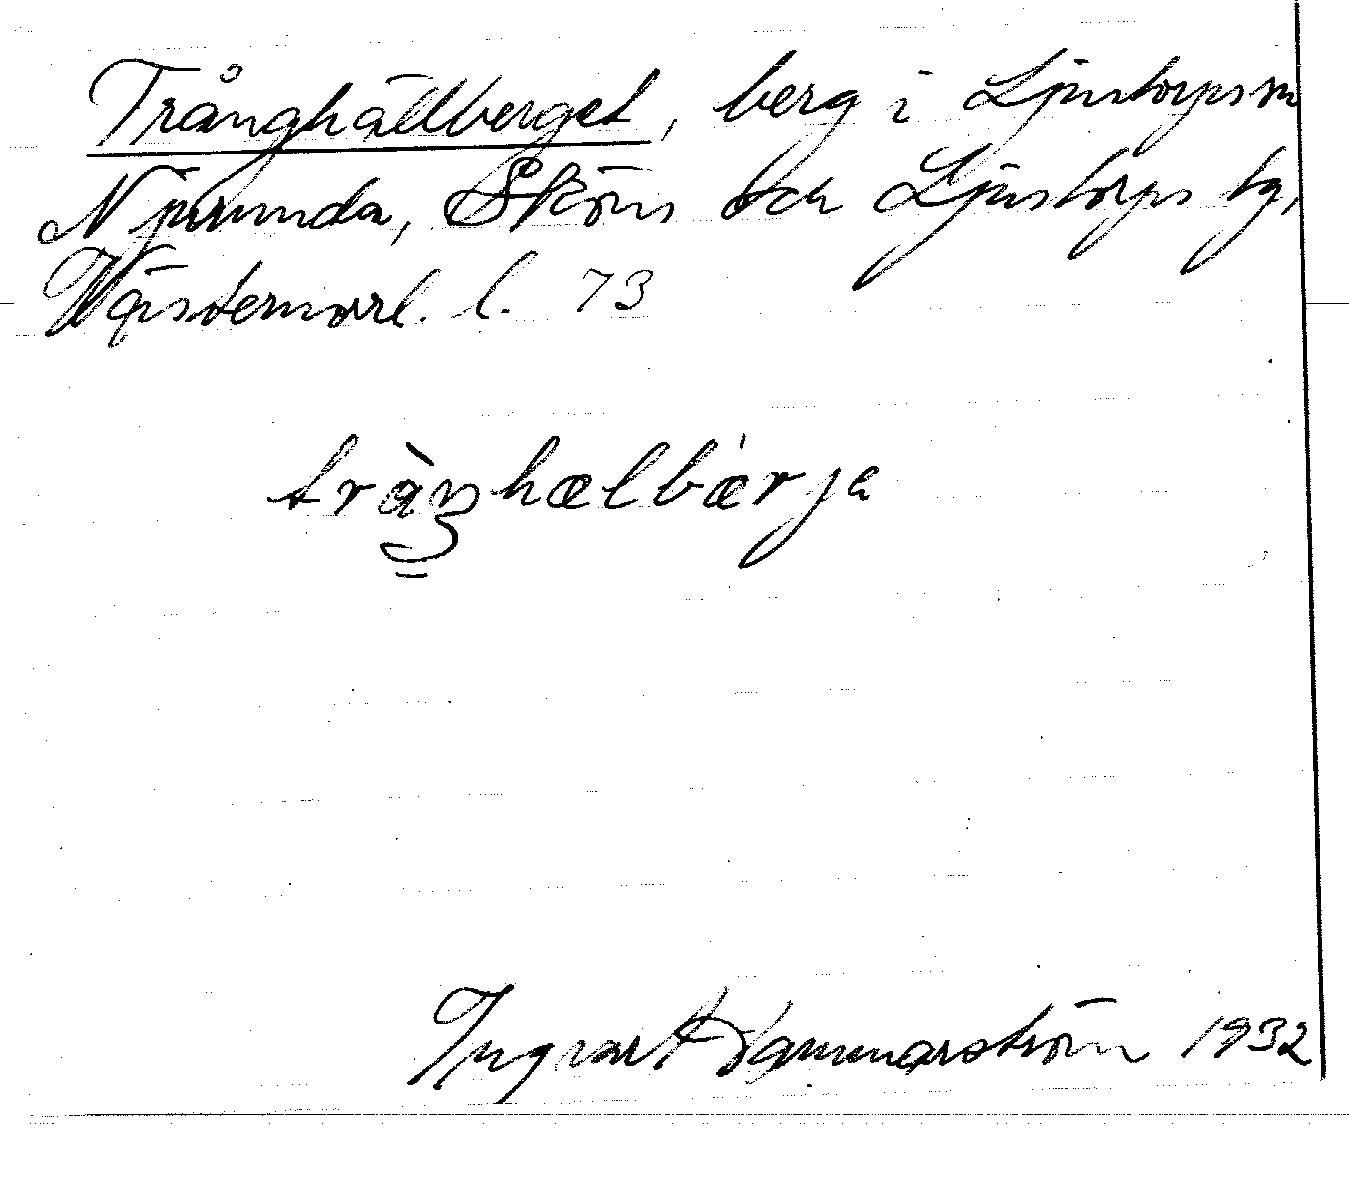 Trånghällberget, berg i Ljustorps sn
Njurunda, Sköns och Ljustorps tg,
Västernorrl. l. 73
tràŋhælbǽrja
Ingvar Hammarström 1932